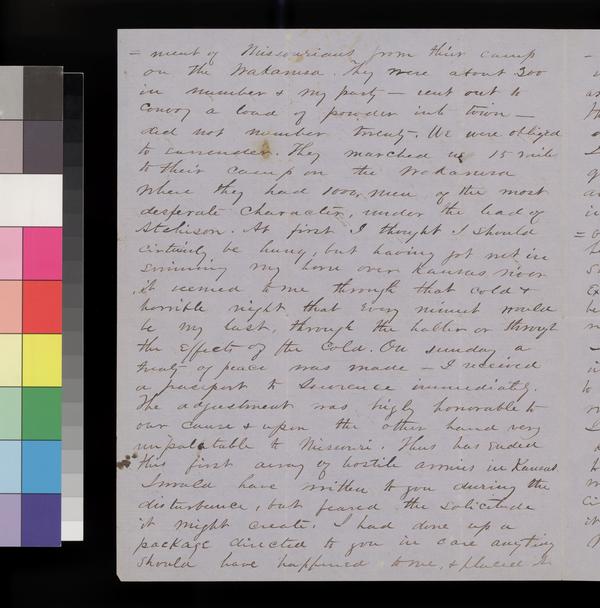 = ment of Missourians from their camp
on the Wakarusa. They were about 300
in number & my party – sent out to
convoy a load of powder into town –
did not number twenty. We were obliged
to surrender. They marched us 15 mile
to their camp on the Wakarusa
where they had 1000 men of the most
desperate character, under the lead of
Atchison. At first I thought I should
certainly be hung, but having got wet in
swimming my horse over Kansas river
it seemed to me through that cold &
horrible night that every minuet would
be my last, through the halter or through
the effects of the cold. On sunday a
treaty of peace was made – I received
a passport to Lawrence immediately.
The adjustment was higly honorable to
our cause & upon the other hand very
unpalatable to Missouri. Thus has ended
this first array of hostile armies in Kansas
I would have written to you during the
disturbance, but feared the solicitude
it might create. I had done up a
package directed to you in case anything
should have happened to me, & placed it